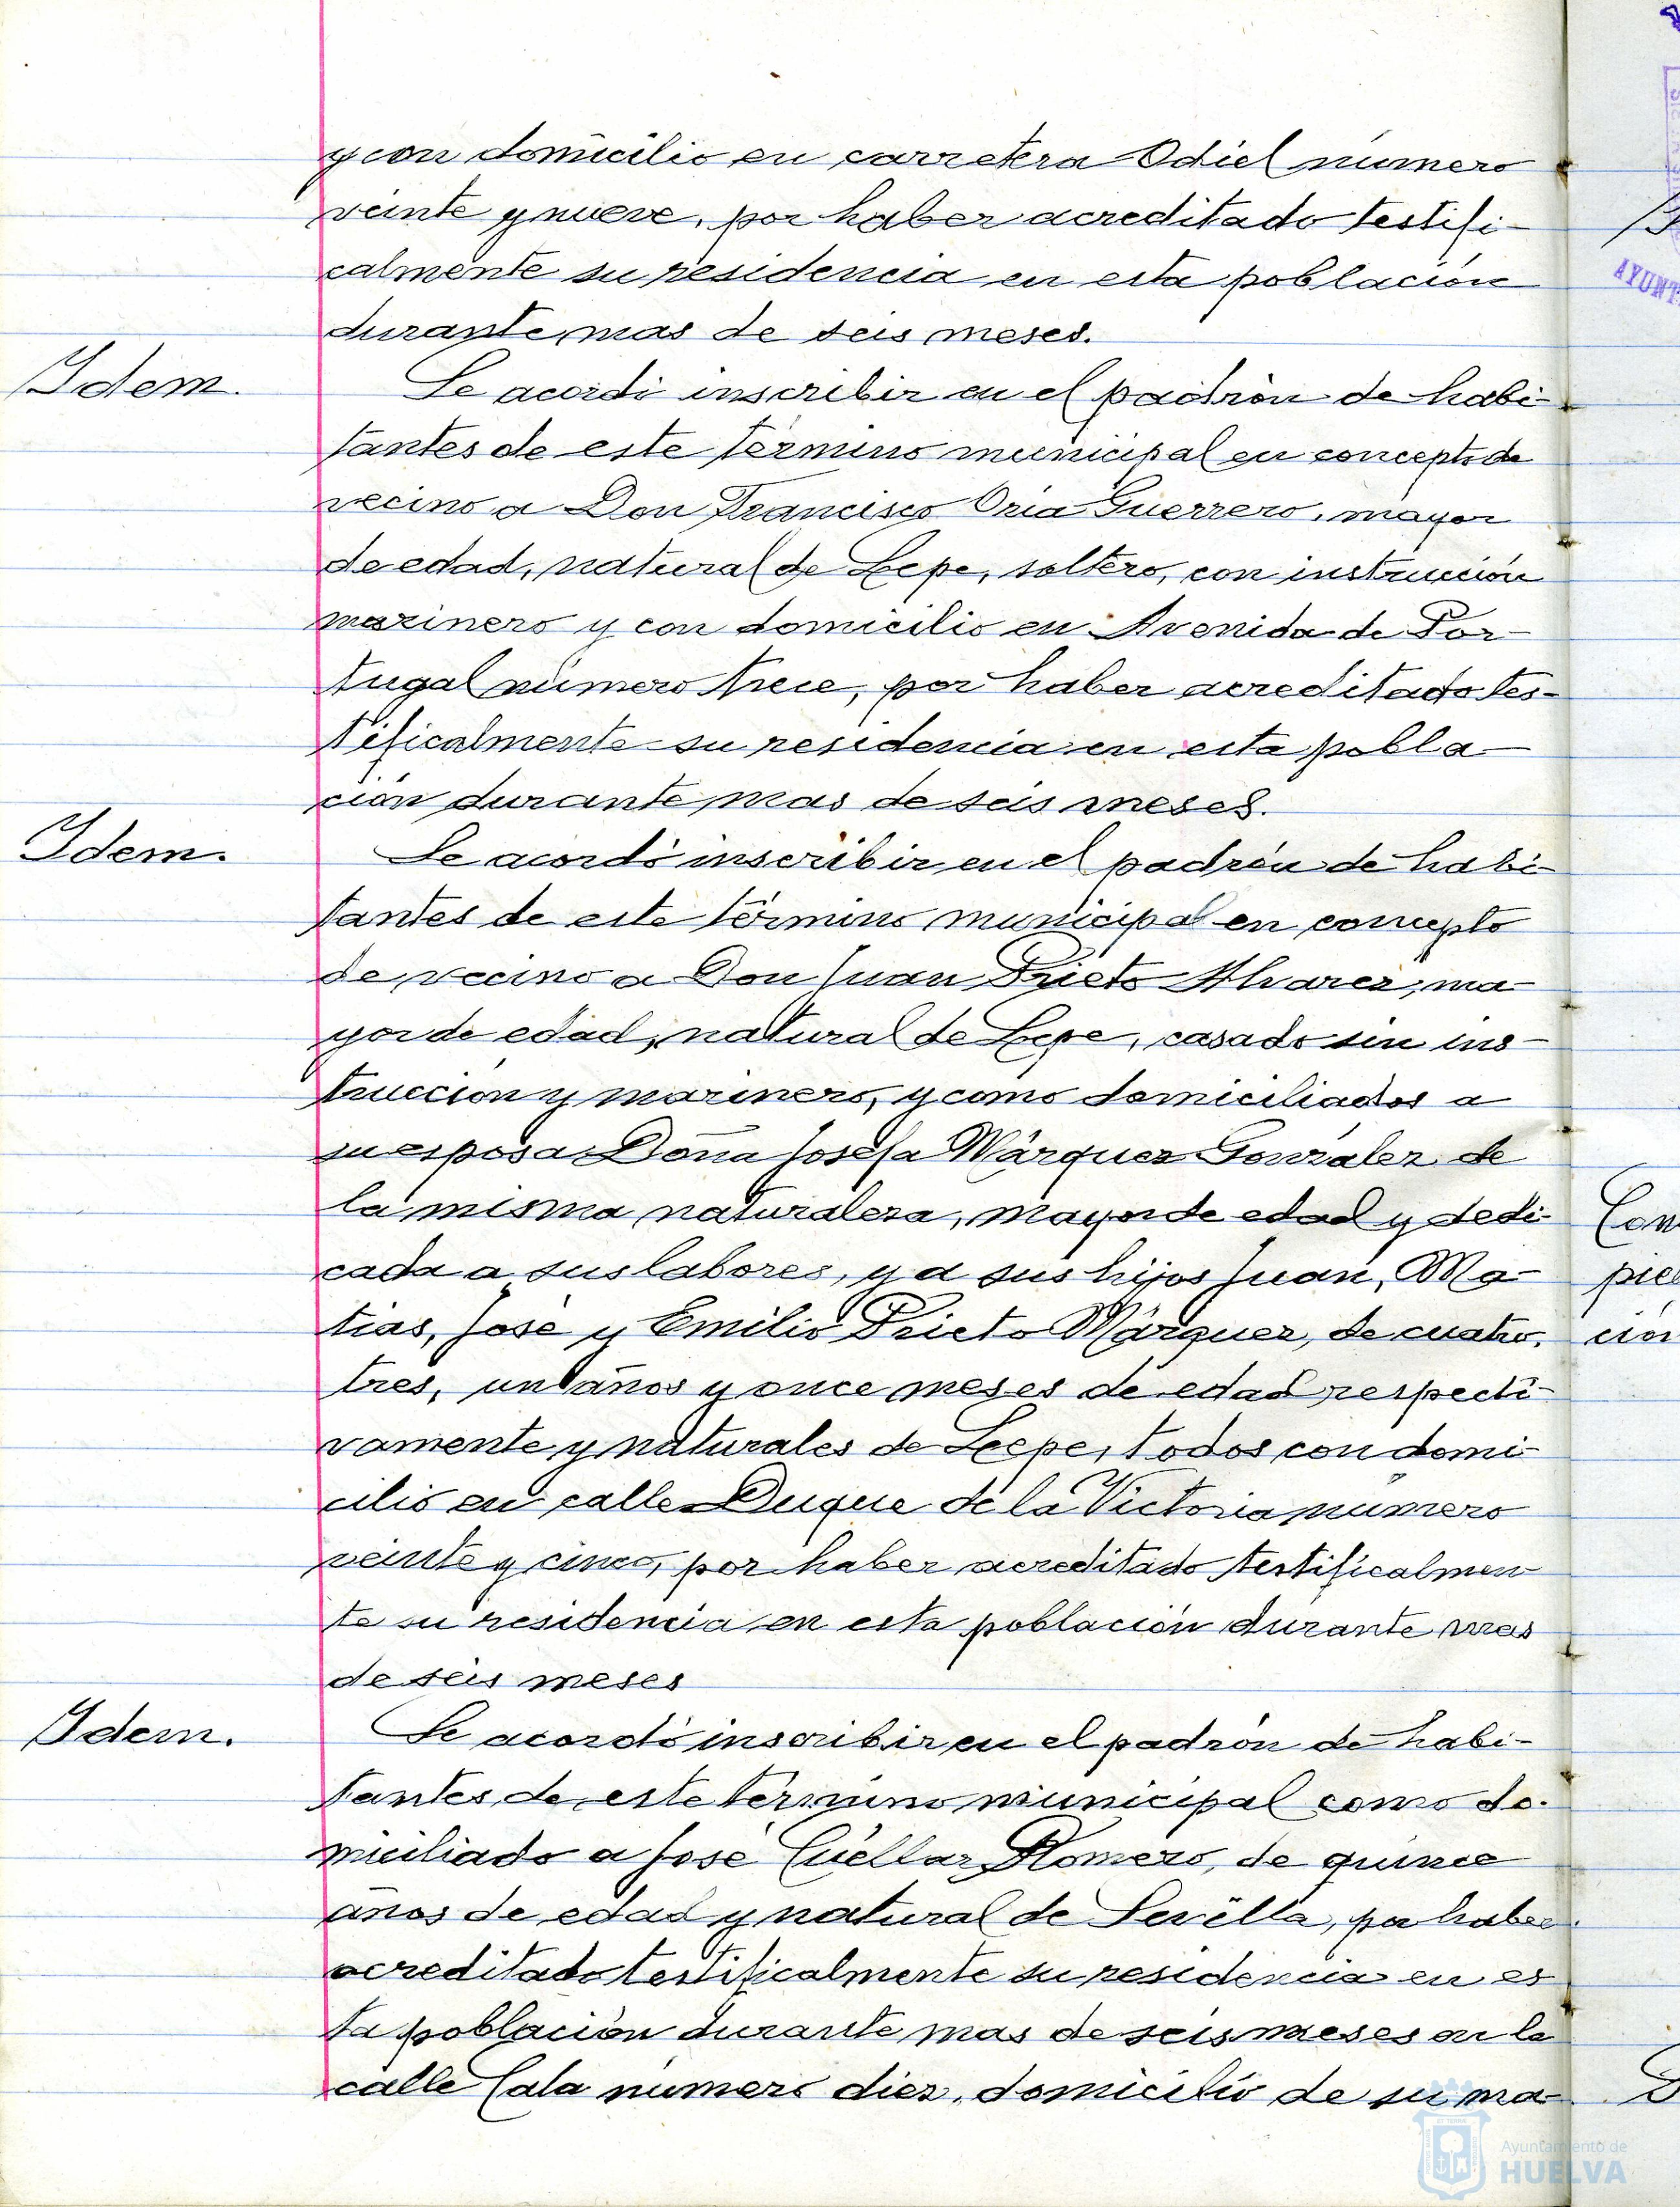 y con domicilio en carretera Odiel número
veinte y nueve, por haber acreditado testifi-
calmente su residencia en esta población
durante mas de seis meses.
Idem.
Se acordó inscribir en el padrón de habi-
tantes de este término municipal en concepto de
vecino a Don Francisco Oria Guerrero, mayor
de edad, natural de Lepe, soltero, con instrucción
marinero y con domicilio en Avenida de Por-
tugal número trece, por haber acreditado tes-
tificalmente su residencia en esta pobla-
ción durante mas de seis meses.
Idem.
Se acordó inscribir en el padrón de habi-
tantes de este término municipal en concepto
de vecino a Don Juan Prieto Alvarez, ma-
yor de edad, natural de Lepe, casado sin ins-
trucción y marinero, y como domiciliados a
su esposa Doña Josefa Márquez González de
la misma naturaleza, mayor de edad y dedi-
cada a sus labores, y a sus hijos Juan, Ma-
tias, José y Emilio Prieto Márquez, de cuatro,
tres, un años y once meses de edad respecti-
vamente y naturales de Lepe, todos con domi-
cilio en calle Duque de la Victoria número
veinte y cinco, por haber acreditado testificalmen-
te su residencia en esta población durante mas
de seis meses
Idem.
Se acordó inscribir en el padrón de habi-
tantes de este término municipal como do-
miciliado a José Cuéllar Romero, de quince
años de edad y natural de Sevilla, por haber
acreditado testificalmente su residencia en es
ta población durante mas de seis meses en la
calle Cala número diez, domicilio de su ma-
AYUNT
Con
pie
ción
Ayuntamiento de
HUELVA